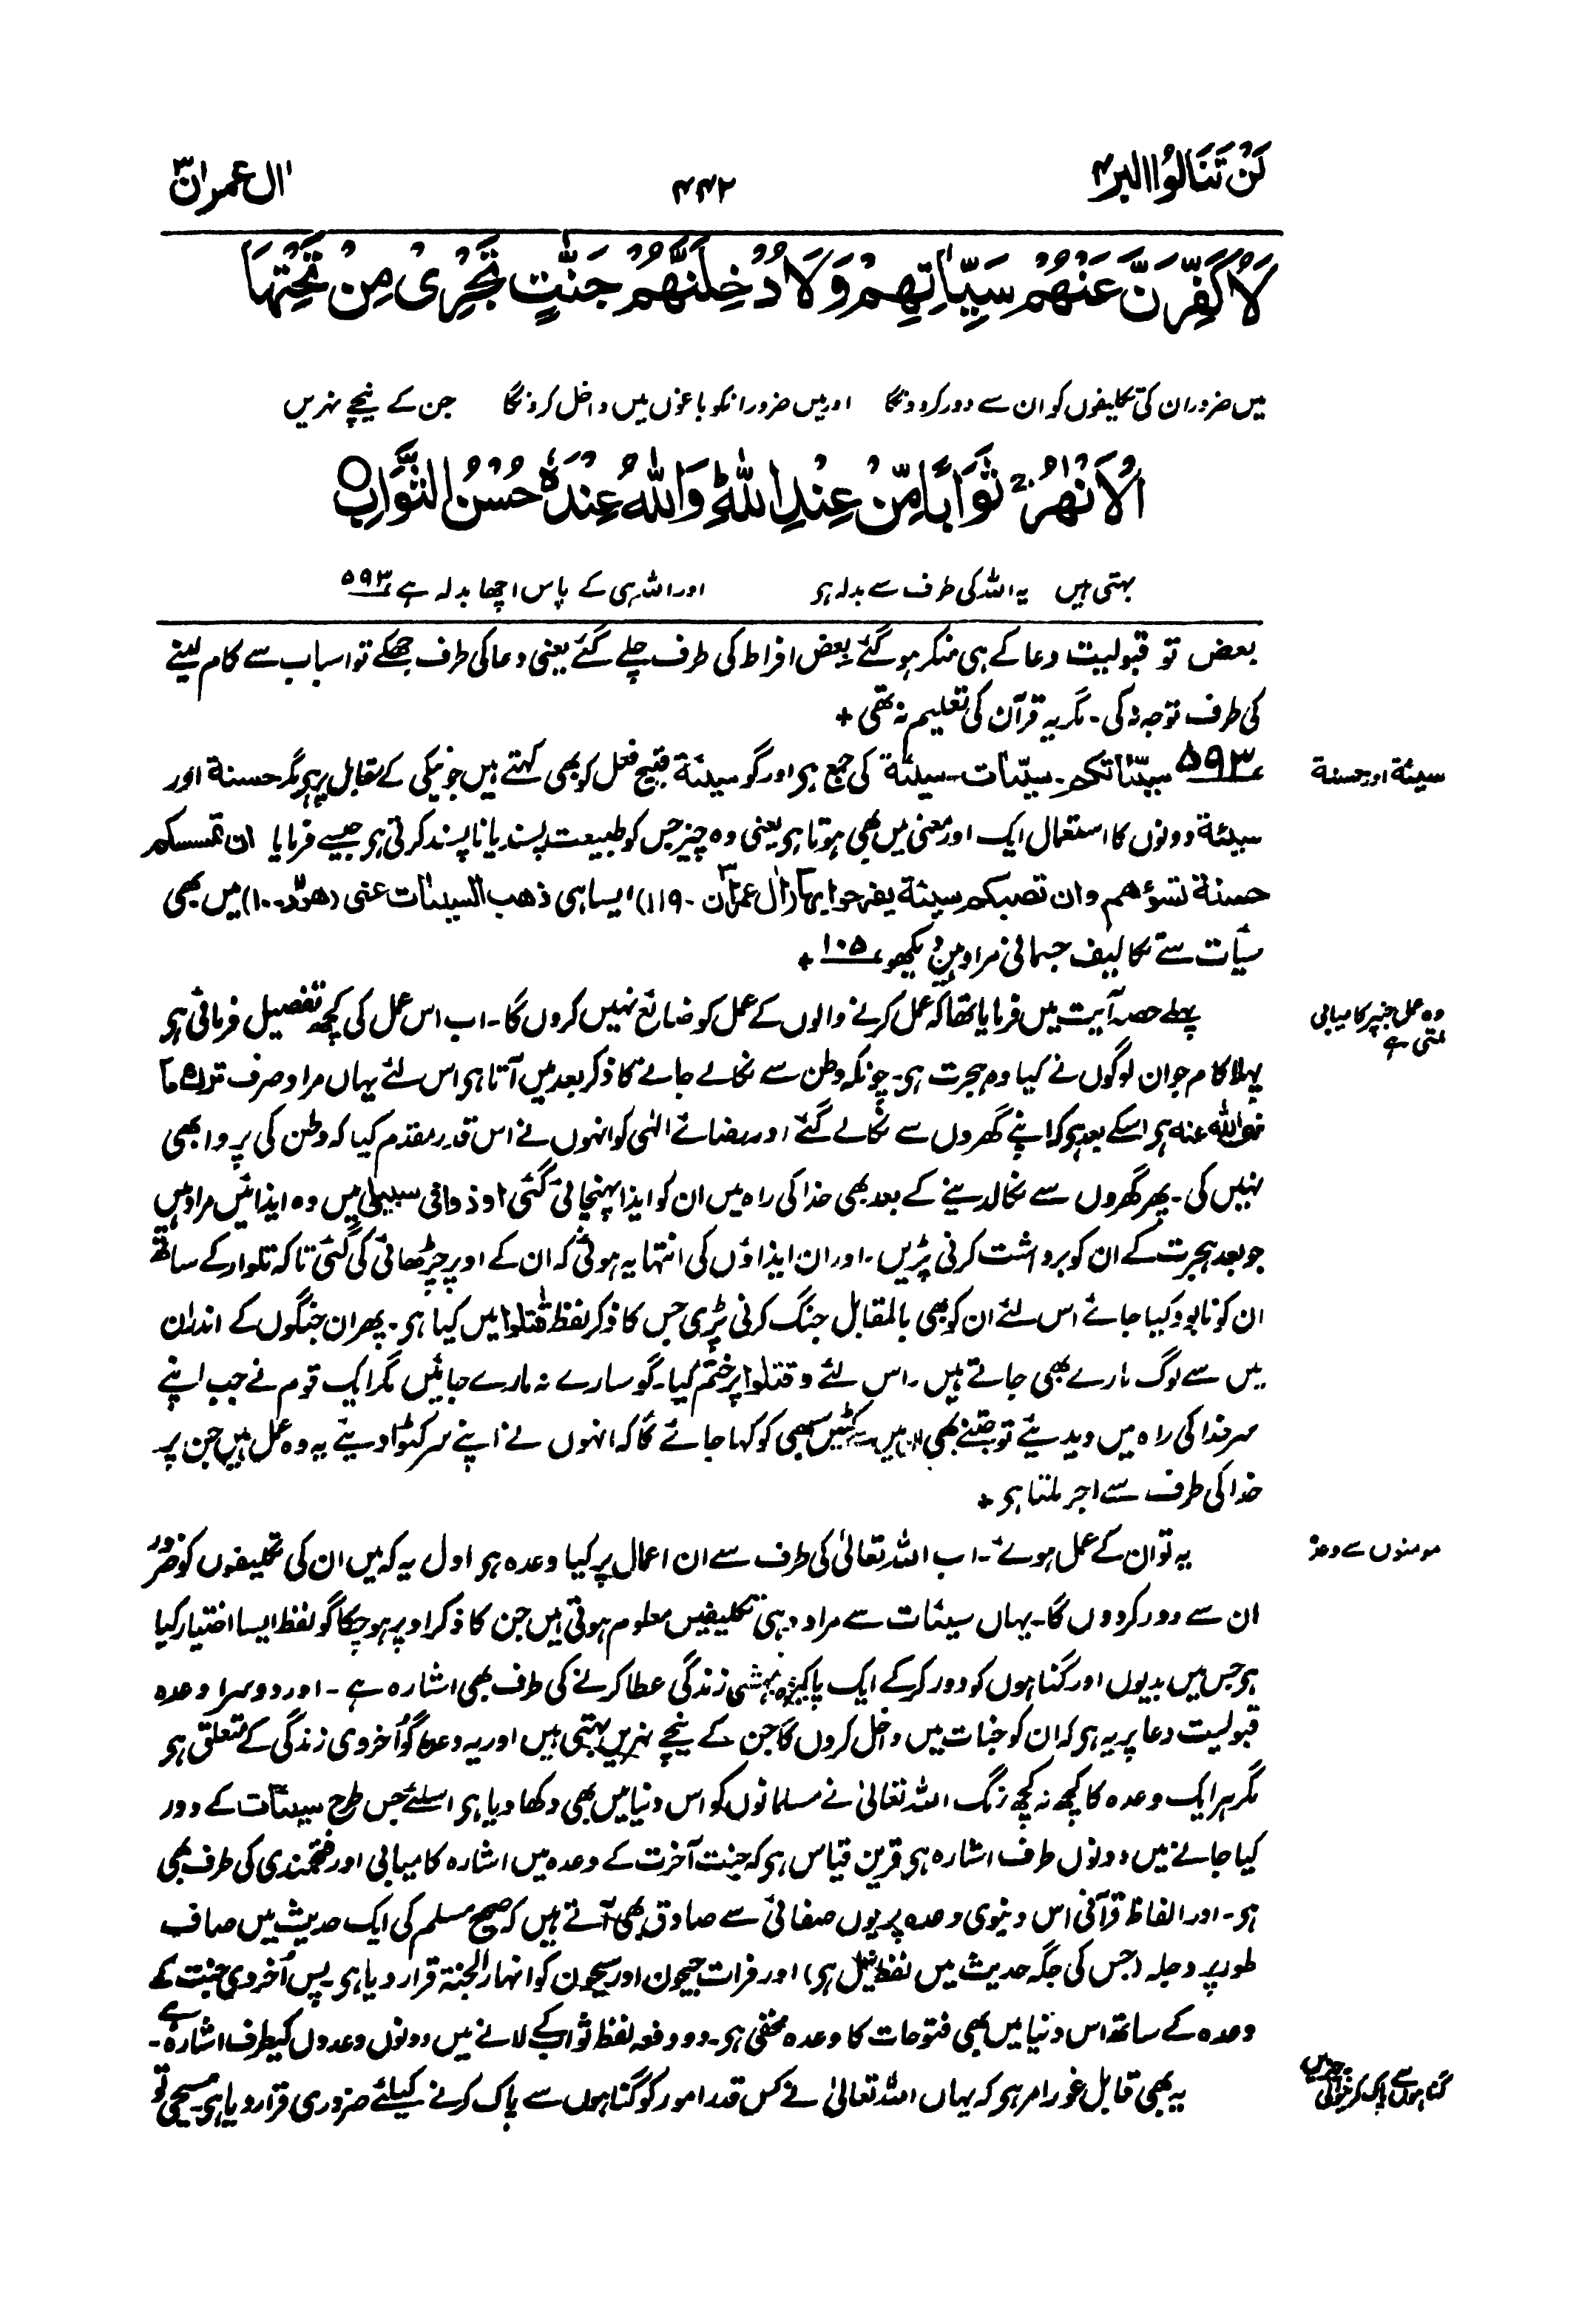 لَنْ تَنَالُوا البر ۴
۴۴۲
اٰل عمرٰن ۳
لَاُكَفِّرَنَّ عَنْهُمْ سَيِّاٰتِهِمْ وَلَاُدْخِلَنَّهُمْ جَنّٰتٍ تَجْرِىْ مِنْ تَحْتِهَا
میں ضرور ان کی تکلیفوں کو ان سے دور کردونگا اور میں ضرور انکو باغوں میں داخل کرونگا جن کے نیچے نہریں
الْاَنْهٰرُ ۚ ثَوَابًا مِّنْ عِنْدِ اللّٰهِ ؕ وَاللّٰهُ عِنْدَهٗ حُسْنُ الثَّوَابِ
بہتی ہیں یہ اللہ کی طرف سے بدلہ ہو اور اللہ ہی کے پاس اچھا بدلہ ہے ۵۹۳
بعض تو قبولیت دعا کے ہی منکر ہو گئے بعض افراط کی طرف چلے گئے یعنی دعا کی طرف جھکے تو اسباب سے کام لینے
کی طرف توجہ نہ کی۔ مگر یہ قرآن کی تعلیم نہ تھی +
سیئة اور حسنة
۵۹۳ سیّئاتکم۔ سیّئات۔ سیئة کی جمع ہو اور گو سیئة قبیح فعل کو بھی کہتے ہیں جو نیکی کے مقابل پر ہو مگر حسنة اور
سیئة دونوں کا استعمال ایک اور معنی میں بھی ہوتا ہو یعنی وہ چیز جس کو طبیعت پسند یا ناپسند کرتی ہو جیسے فرمایا ان تمسسکم
حسنة تسؤهم وان تصبکم سیئة یفرحوا بها (اٰل عمرٰن ۳۔ ۱۱۹) ایسا ہی ذهب السیئات عنی (هود۔ ۱۰) میں بھی
سیّات سے تکالیف جسمانی مراد ہیں دیکھو ۱۰۵ +
وہ عمل جنپر کامیابی
ملتی ہے
پہلے حصہ آیت میں فرمایا تھا کہ عمل کرنے والوں کے عمل کو ضائع نہیں کروں گا۔ اب اس عمل کی کچھ تفصیل فرمائی ہو
پہلا کام جو ان لوگوں نے کیا وہ ہجرت ہو۔ چونکہ وطن سے نکالے جانے کا ذکر بعد میں آتا ہو اس لئے یہاں مراد صرف ترك ما
نهی الله عنه ہو اسکے بعد ہو کہ اپنے گھروں سے نکالے گئے اور رضائے الٰہی کو انہوں نے اس قدر مقدم کیا کہ وطن کی پروا بھی
نہیں کی۔ پھر گھروں سے نکالدینے کے بعد بھی خدا کی راہ میں ان کو ایذا پہنچائی گئی اوذوا فی سبیلی میں وہ ایذائیں مراد ہیں
جو بعد ہجرت کے ان کو برداشت کرنی پڑیں۔ اور ان ایذاؤں کی انتہا یہ ہوئی کہ ان کے اوپر چڑھائی کی گئی تا کہ تلوار کے ساتھ
ان کو نابود کیا جائے اس لئے ان کو بھی بالمقابل جنگ کرنی پڑی جس کا ذکر لفظ قٰتلوا میں کیا ہو۔ پھر ان جنگوں کے اندر ان
میں سے لوگ مارے بھی جاتے ہیں۔ اس لئے و قتلوا پر ختم کیا۔ گو سارے نہ مارے جائیں مگر ایک قوم نے جب اپنے
سر خدا کی راہ میں دیدیئے تو جتنے بھی ان میں سے کٹیں سبھی کو کہا جائے گا کہ انہوں نے اپنے سر کٹوا دیئے یہ وہ عمل ہیں جن پر
خدا کی طرف سے اجر ملتا ہو +
مومنوں سے وعدہ
یہ تو ان کے عمل ہوئے۔ اب اللہ تعالیٰ کی طرف سے ان اعمال پر کیا وعدہ ہو اول یہ کہ میں ان کی تکلیفوں کو ضرور
ان سے دور کردوں گا۔ یہاں سیئات سے مراد وہی تکلیفیں معلوم ہوتی ہیں جن کا ذکر اوپر ہو چکا گو لفظ ایسا اختیار کیا
ہو جس میں بدیوں اور گناہوں کو دور کرکے ایک پاکیزہ بہشتی زندگی عطا کرنے کی طرف بھی اشارہ ہے۔ اور دوسرا وعدہ
قبولیت دعا پر یہ ہو کہ ان کو جنات میں داخل کروں گا جن کے نیچے نہریں بہتی ہیں اور یہ وعدہ گو اُخروی زندگی کے متعلق ہو
مگر ہر ایک وعدہ کا کچھ نہ کچھ رنگ اللہ تعالیٰ نے مسلمانوں کو اس دنیا میں بھی دکھا دیا ہو اسلئے جس طرح سیئات کے دور
کیا جانے میں دونوں طرف اشارہ ہو قرین قیاس ہو کہ جنت آخرت کے وعدہ میں اشارہ کامیابی اور فتحمندی کی طرف بھی
ہو۔ اور الفاظ قرآنی اس دنیوی وعدہ پر یوں صفائی سے صادق بھی آتے ہیں کہ صحیح مسلم کی ایک حدیث میں صاف
طور پر دجلہ (جس کی جگہ حدیث میں لفظ نیل ہو) اور فرات جیحون اور سیحون کو انهار الجنة قرار دیا ہو۔ پس اُخروی جنت کے
وعدہ کے ساتھ اس دنیا میں بھی فتوحات کا وعدہ مخفی ہو۔ دو دفعہ لفظ ثواب کے لانے میں دونوں وعدوں کیطرف اشارہ ہے۔
گناہوں سے پاک کرنیوالی چیزیں
یہ بھی قابل غور امر ہو کہ یہاں اللہ تعالیٰ نے کس قدر امور کو گناہوں سے پاک کرنے کیلئے ضروری قرار دیا ہو۔ مسیحی تو